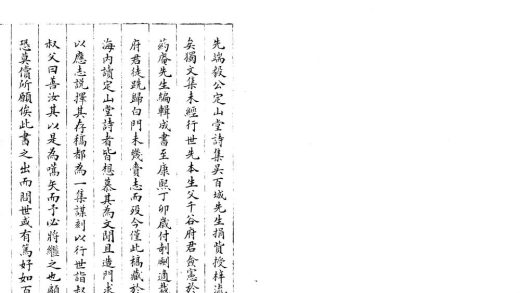 先端毅公定山堂詩集吳百城先生捐貲授梓流
矣獨文集未經行世先本生父千谷府君僉憲於
药庵先生編輯成書至康熙丁卯歲付剞劂適裁
府君徒跣歸白門未幾賫志而歿今僅此稿藏於
海內讀定山堂詩者皆想慕其為文閒且造門求
以應志説擇其存稿都為一集謀刻以行世詣叔
叔父曰善汝其以是為嚆矢而予必將繼之也顧
恐莫償所願俟此書之出而問世或有篤好如百